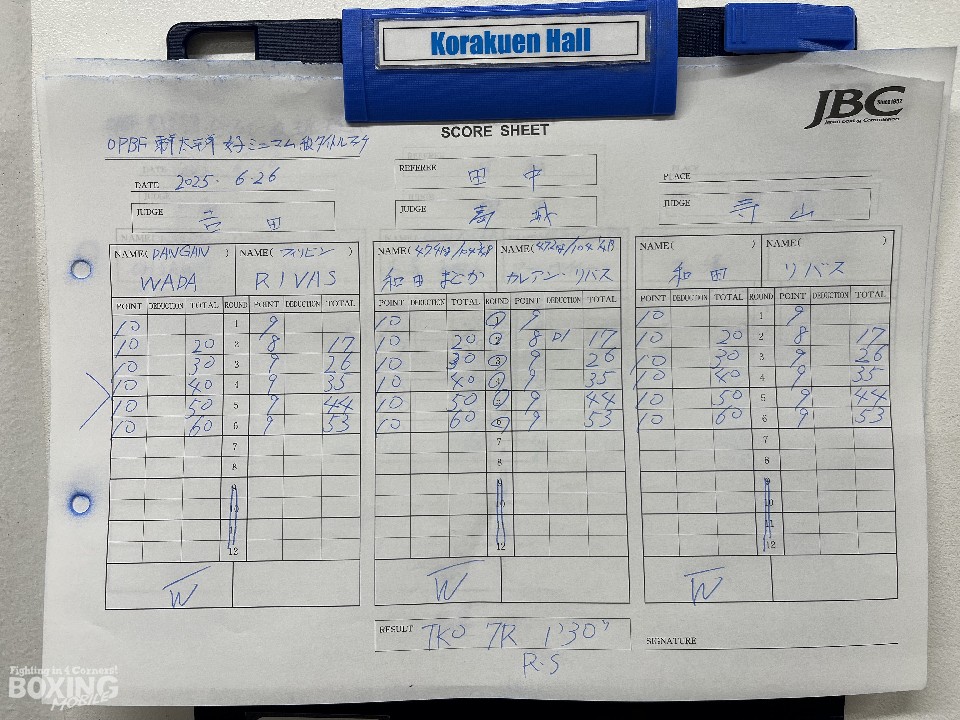 Korakuen Hall
JBC
Since 1952
SCORE SHEET
OPBF 東洋太平洋 女子ミニマム級タイトルマッチ
DATE 2025. 6.26
REFEREE 田中
PLACE
JUDGE 吉田
JUDGE 葛城
JUDGE 寺山
NAME(DANGAN) NAME(フィリピン)
WADA RIVAS
POINT DEDUCTION TOTAL ROUND POINT DEDUCTION TOTAL
10 1 9
10 20 2 8 17
10 30 3 9 26
10 40 4 9 35
10 50 5 9 44
10 60 6 9 53
7
8
12
W
NAME( ) NAME( )
和田 まどか カレアン・リバス
POINT DEDUCTION TOTAL ROUND POINT DEDUCTION TOTAL
10 1 9
10 20 2 8 D1 17
10 30 3 9 26
10 40 4 9 35
10 50 5 9 44
10 60 6 9 53
7
8
9
10
12
W
NAME( ) NAME( )
和田 リバス
POINT DEDUCTION TOTAL ROUND POINT DEDUCTION TOTAL
10 1 9
10 20 2 8 17
10 30 3 9 26
10 40 4 9 35
10 50 5 9 44
10 60 6 9 53
7
8
9
10
11
12
W
RESULT TKO 7R 1'30"
R.S
SIGNATURE
Fighting in 4 Corners!
BOXING
MOBILE